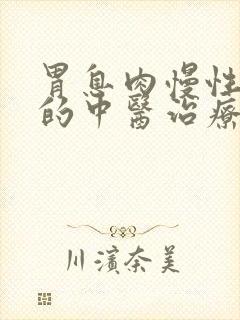 胃息肉慢性
的中醫治療
川濱奈美